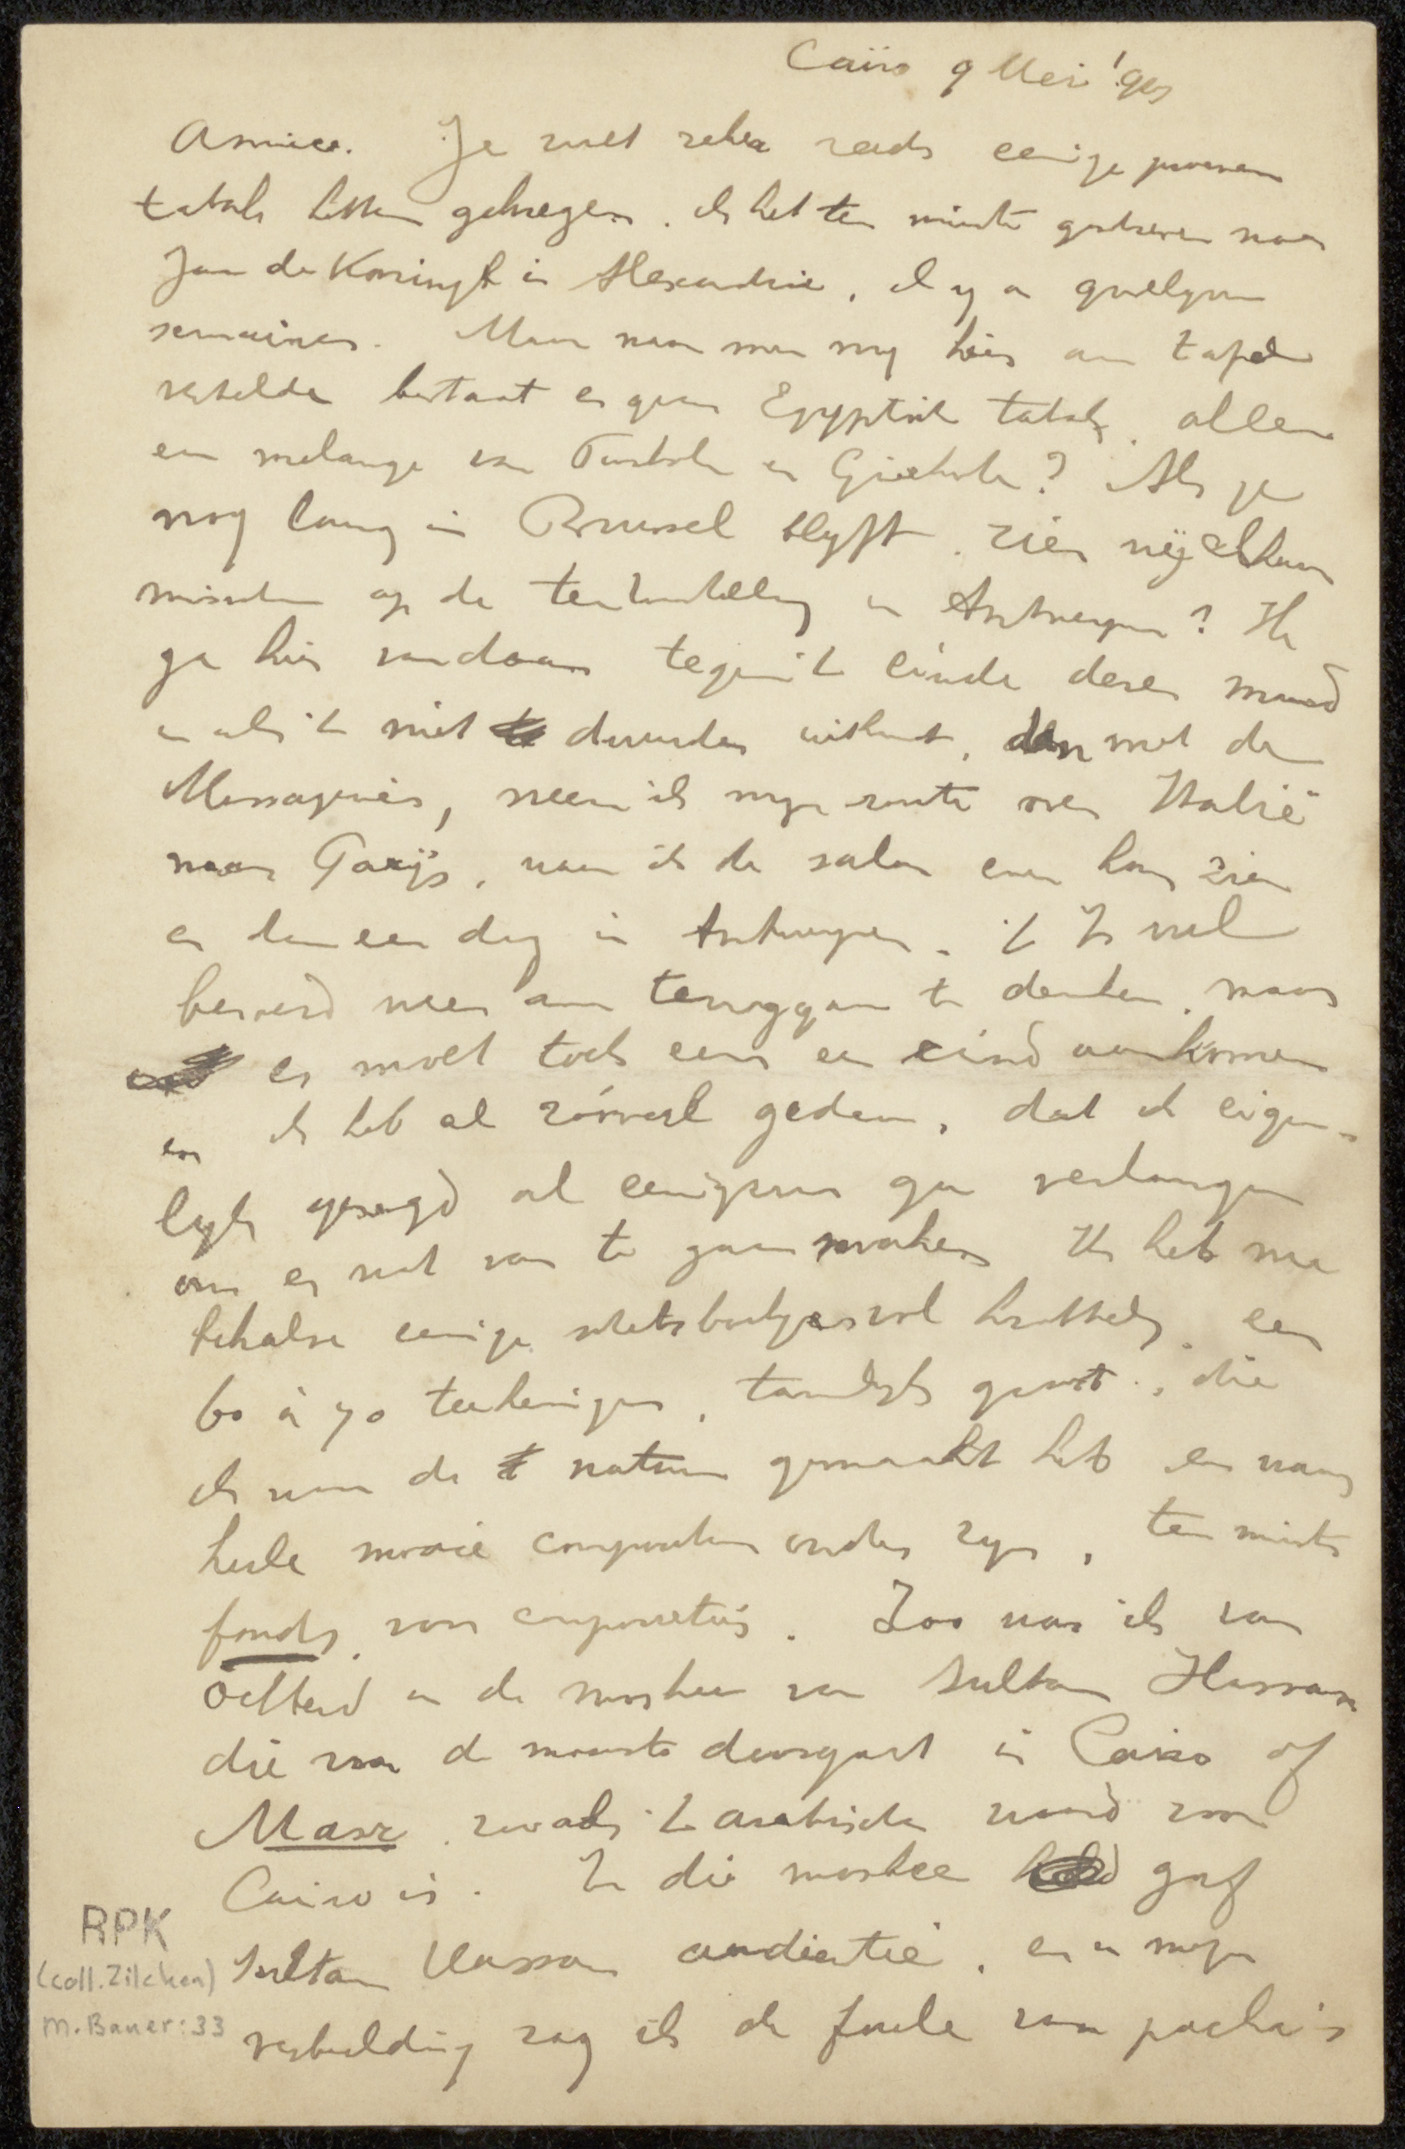 Caïro 9 Mei '95
Amice. Je zult zeker reeds eenige proeven
tabak hebben gekregen. ik heb ten minste geschreven naar
Jan de Koningh in Alexandrie, il y a quelques
semaines. Maar naar men my hier aan tafel
vertelde bestaat er geen Egyptische tabak, alleen
een melange van Turksche en Grieksche? Als je
nog lang in Brussel blyft, zien wij elkaar
misschien op de tentoonstelling in Antwerpen? Ik
ga hier vandaan tegen 't einde dezer maand
en als 't niet duurder uitkomt, dan met de
Messageries, neem ik myn route over Italië
naar Parijs, waar ik de salon even kan zien
en dan een dag in Antwerpen. 't Is wel
beroerd weer aan teruggaan te denken, maar
er moet toch eens een eind aankomen
en ik heb al zóóveel gedaan, dat ik eigen-
lyk gezegd al eenigszins ga verlangen
om er wat van te gaan maken Ik heb nu
behalve eenige schetsboekjes vol krabbels, een
60 à 70 teekeningen, tamelyk groot, die
ik naar de natuur gemaakt heb en waar
heele mooie composities onder zyn, ten minste
fonds van composities. Zoo was ik van
ochtend in de moskee van Sultan Hassan
die van de mooiste doorgaat in Cairo of
Masr, zooals 't arabische woord voor
Cairo is. In die moskee gaf
Sultan Hassan audientie, en in myn
verbeelding zag ik de foule van pacha's
RPK
(coll. Zilcken)
M. Bauer: 33